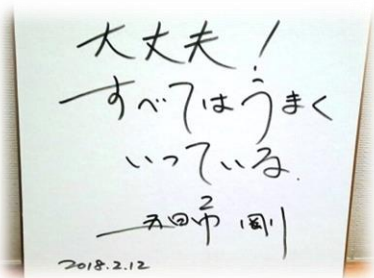 大丈夫！
すべてはうまく
いっている。
五日市 剛
2018.2.12